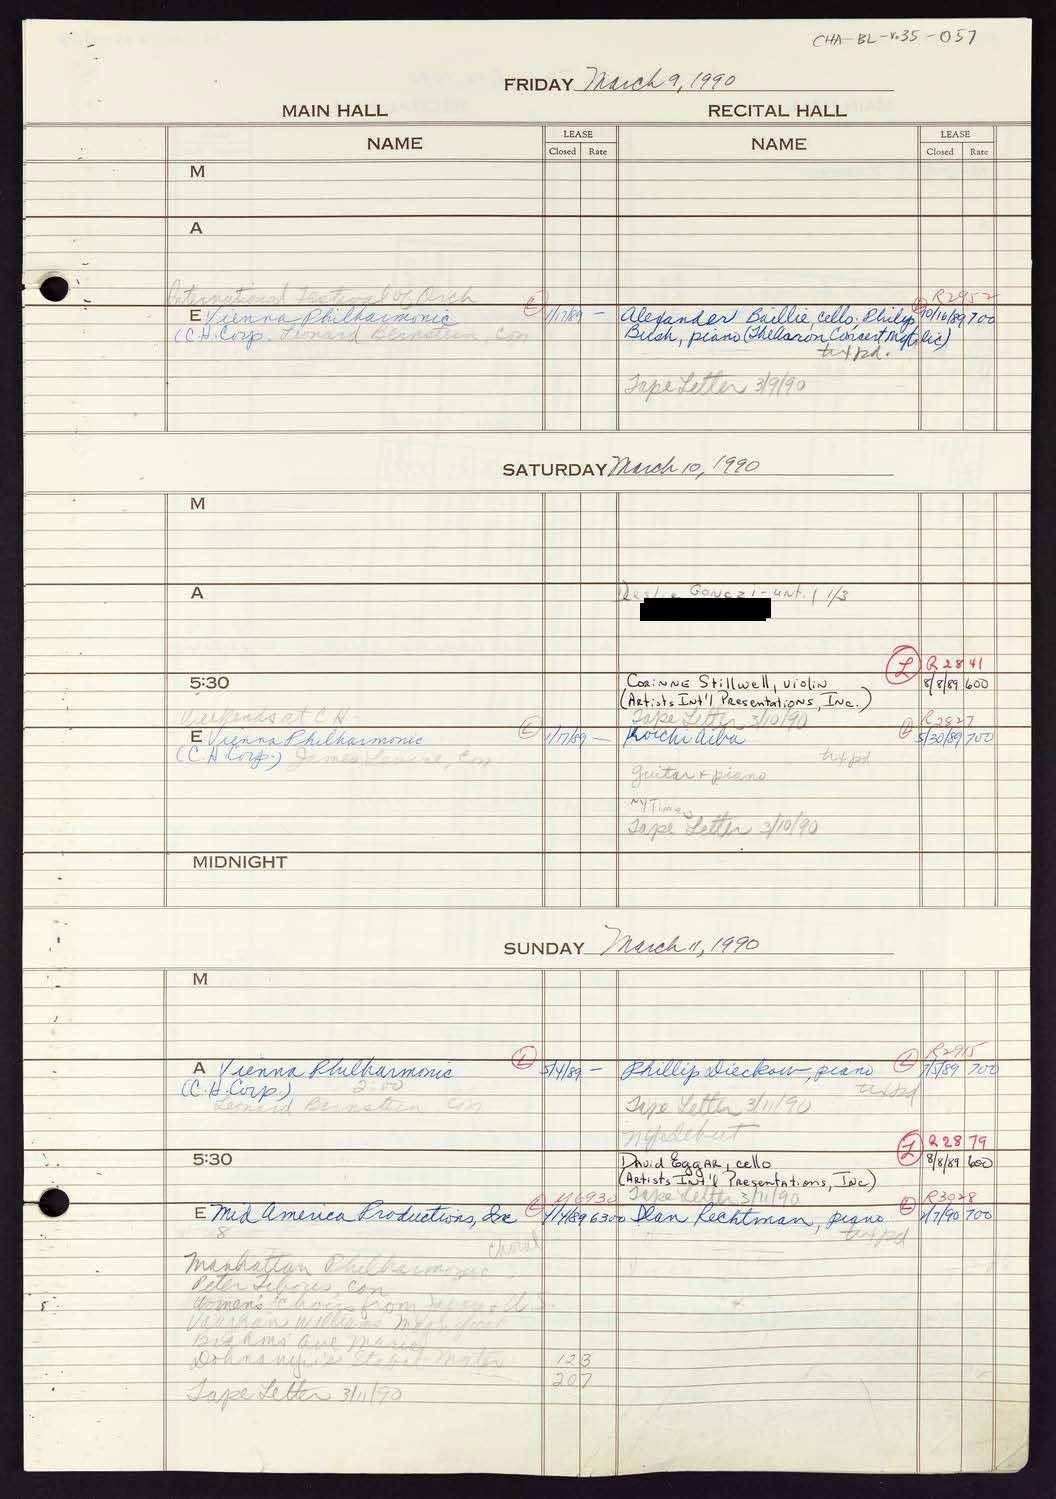 CHA-BL-v.35-057
FRIDAY March 9, 1990
MAIN HALL RECITAL HALL
NAME LEASE Closed Rate NAME LEASE Closed Rate
M
A
International Festival of Orch R2952
E Vienna Philharmonic L 1/17/89 — Alexander Baillie, cello; Philip L 10/16/89 700
(C.H. Corp. Leonard Bernstein, Con Bush, piano (The Aaron Concert Mgt, Inc)
txt pd.
Tape Letter 3/9/90
SATURDAY March 10, 1990
M
A Leslie Gonczi - unt. 1/3
L R2841
5:30 Corinne Stillwell, violin 8/8/89 600
(Artists Int'l Presentations, Inc.)
Weekends at C H Tape Letter, 3/10/90 R2827
E Vienna Philharmonic L 1/17/89 — Koichi Aiba L 5/30/89 700
(C.H. Corp.) James Levine, Con txt pd
guitar + piano
NY Times
Tape Letter 3/10/90
MIDNIGHT
SUNDAY March 11, 1990
M
R2915
A Vienna Philharmonic L 5/4/89 — Phillip Dieckow, piano L 700
(C.H. Corp.) 2:00 txt pd
Leonard Bernstein, Con Tape Letter 3/11/90
NY debut
L R2879
5:30 David Eggar, cello 8/8/89 600
(Artists Int'l Presentations, Inc)
L M6930 Tape Letter 3/11/90 R3028
E Mid America Productions, Inc 6300 Dean Rechtman, piano L 2/7/90 700
8 txt pd
choral
Manhattan Philharmonic
Peter Tiboris, Con
Women's Choirs from Japan + U.S.
Vaughan Williams Magnificat
Brahms' Ave Maria
Dohnanyi's Stabat Mater 123
207
Tape Letter 3/11/90